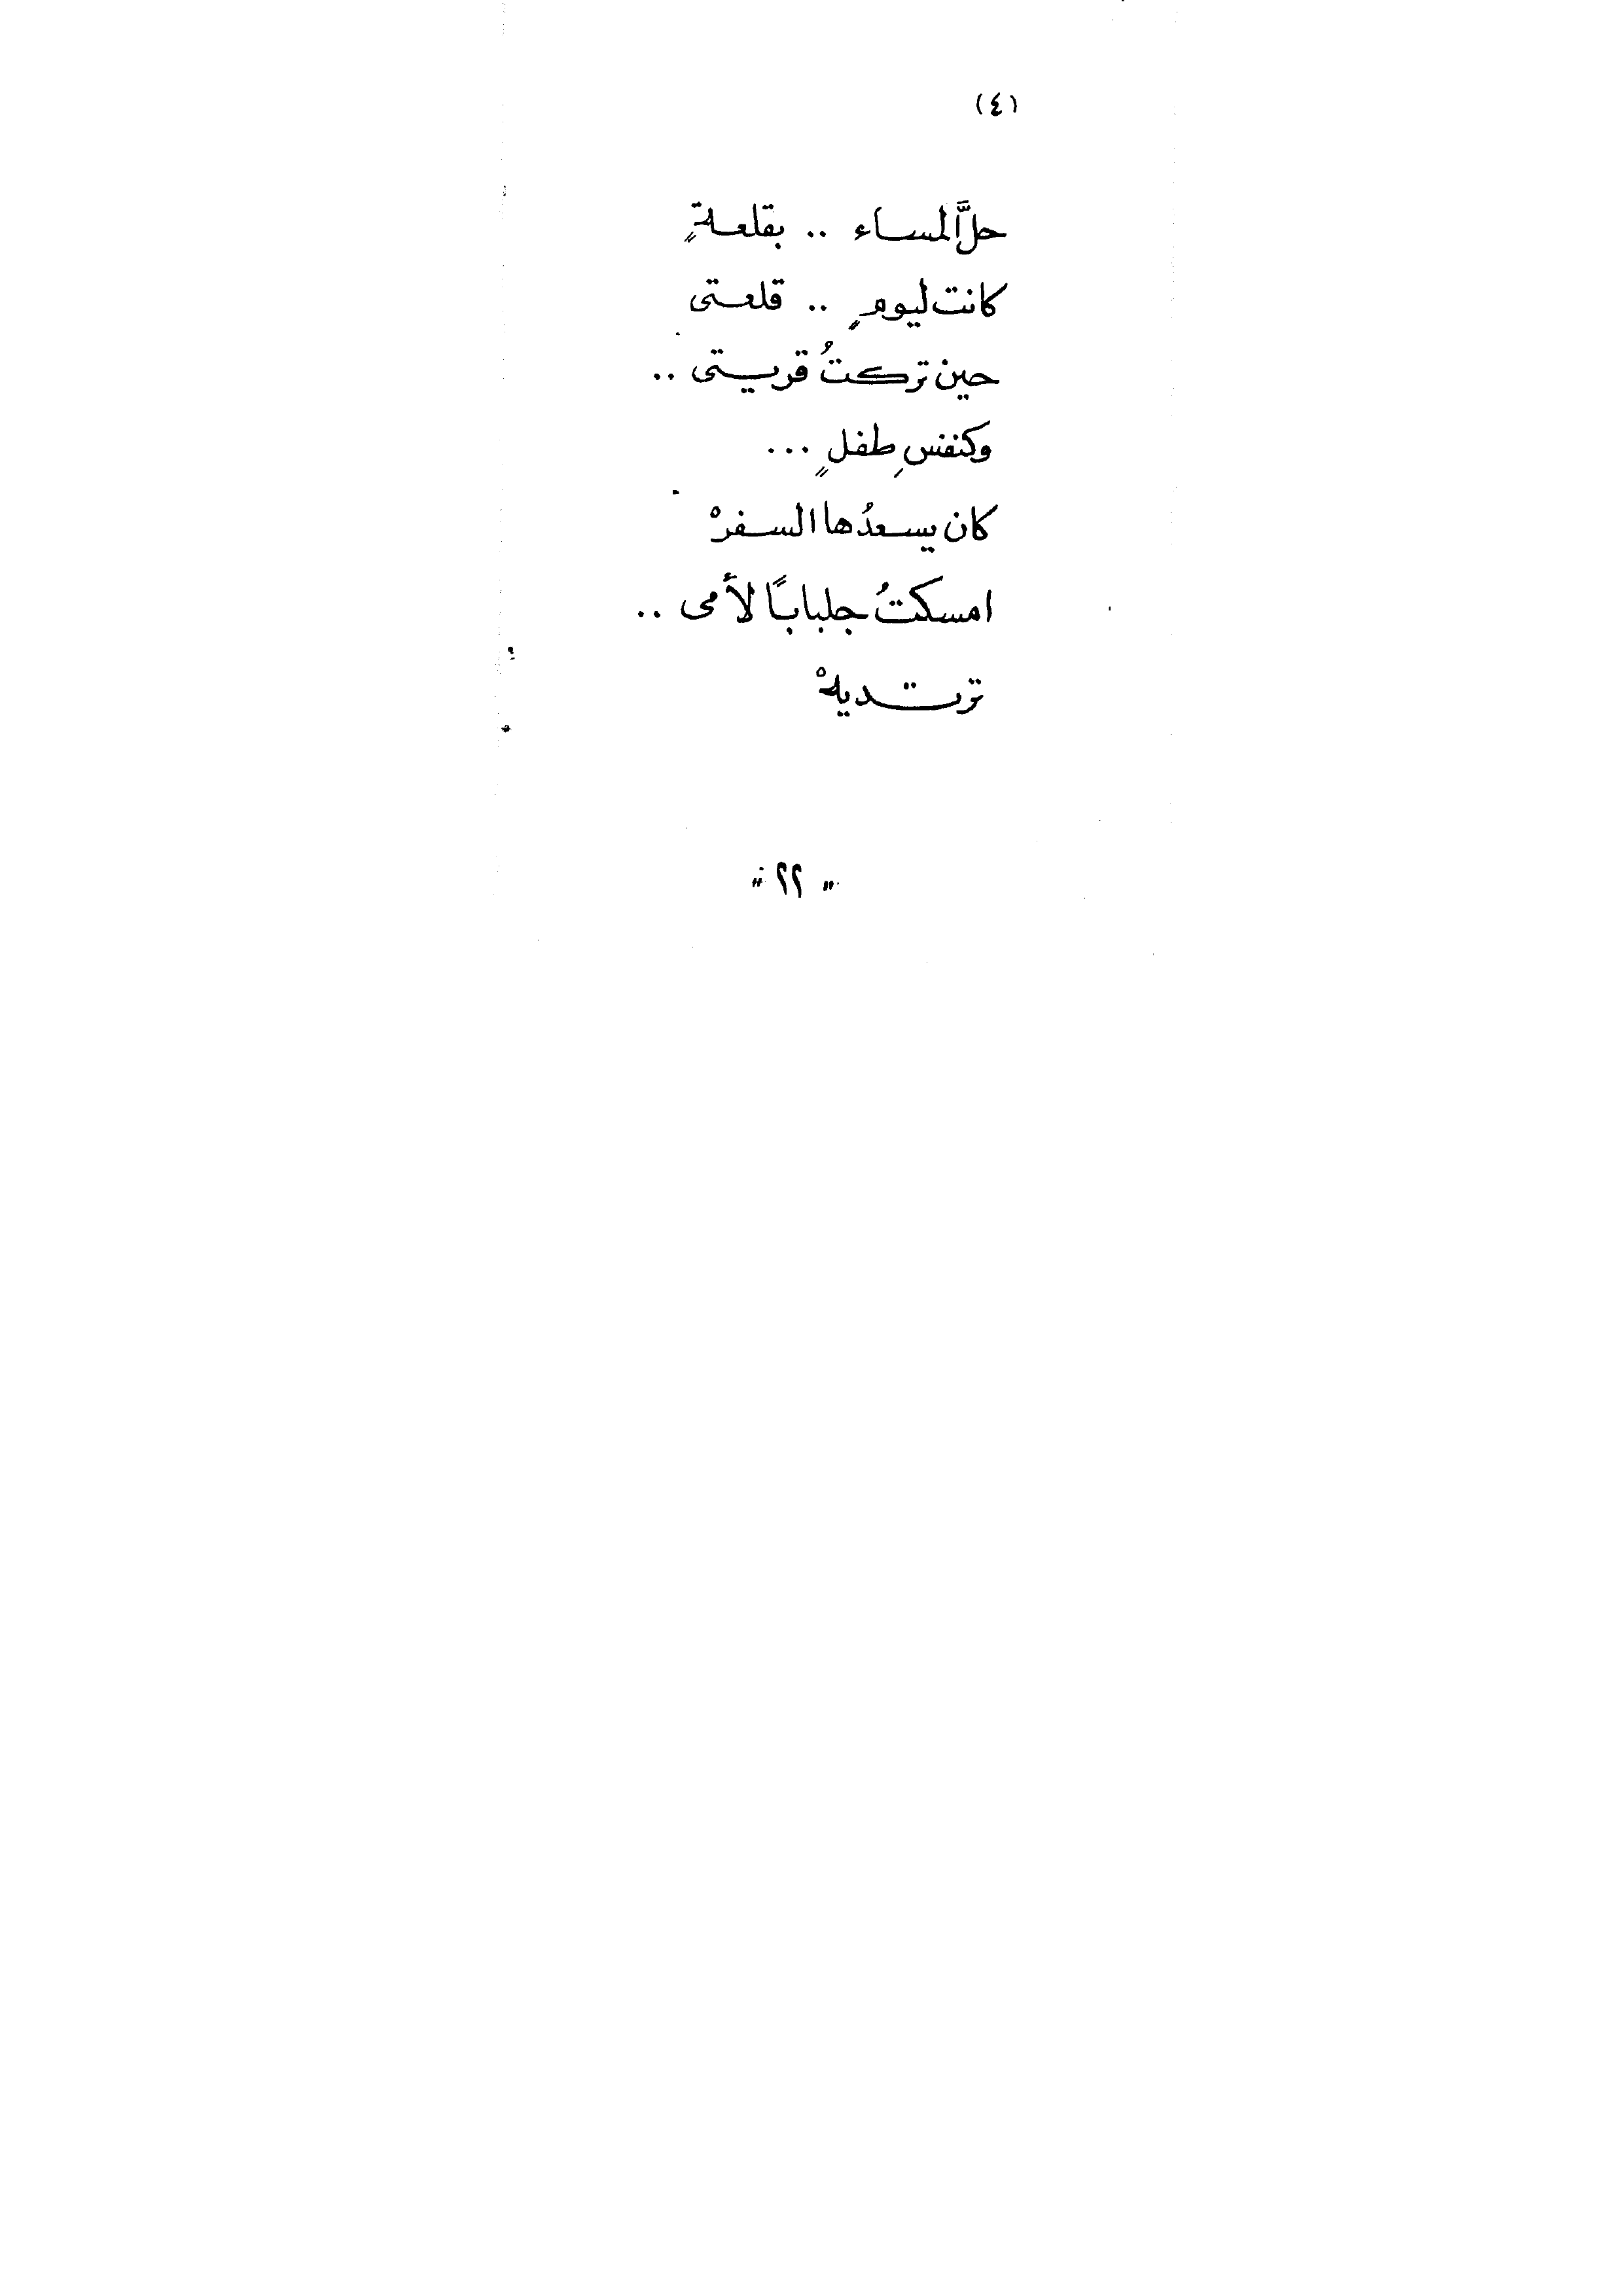 (٤)
حلَّ المساء .. بقلعةٍ
كانت ليومٍ .. قلعتى
حين تركتُ قريتى ..
وكنفسِ طفلٍ ...
كان يسعدُها السفرْ
امسكتُ جلبابًا لأمى ..
ترتديهْ
" ٢٢ "